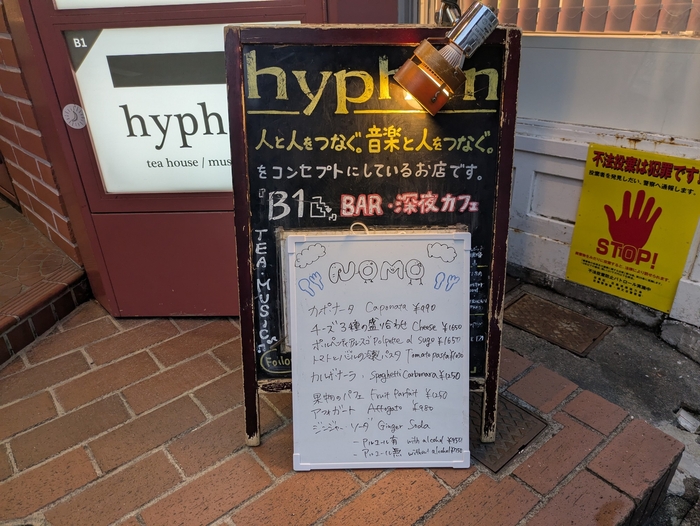 B1
hyph
tea house / mus
hyphen
人と人をつなぐ。音楽と人をつなぐ。
をコンセプトにしているお店です。
B1
BAR・深夜カフェ
TEA・MUSIC
NOMO
カポナータ Caponata ¥990
チーズ3種の盛り合わせ Cheese ¥1650
Polpette al sugo ¥1650
Tomato pasta
カルボナーラ Spaghetti Carbonara ¥1250
果物のパフェ Fruit Parfait ¥1250
アフォガート Affogato ¥980
ジンジャーソーダ Ginger Soda
- アルコール有 with alcohol
- アルコール無 without alcohol
不法投棄は犯罪です
STOP!